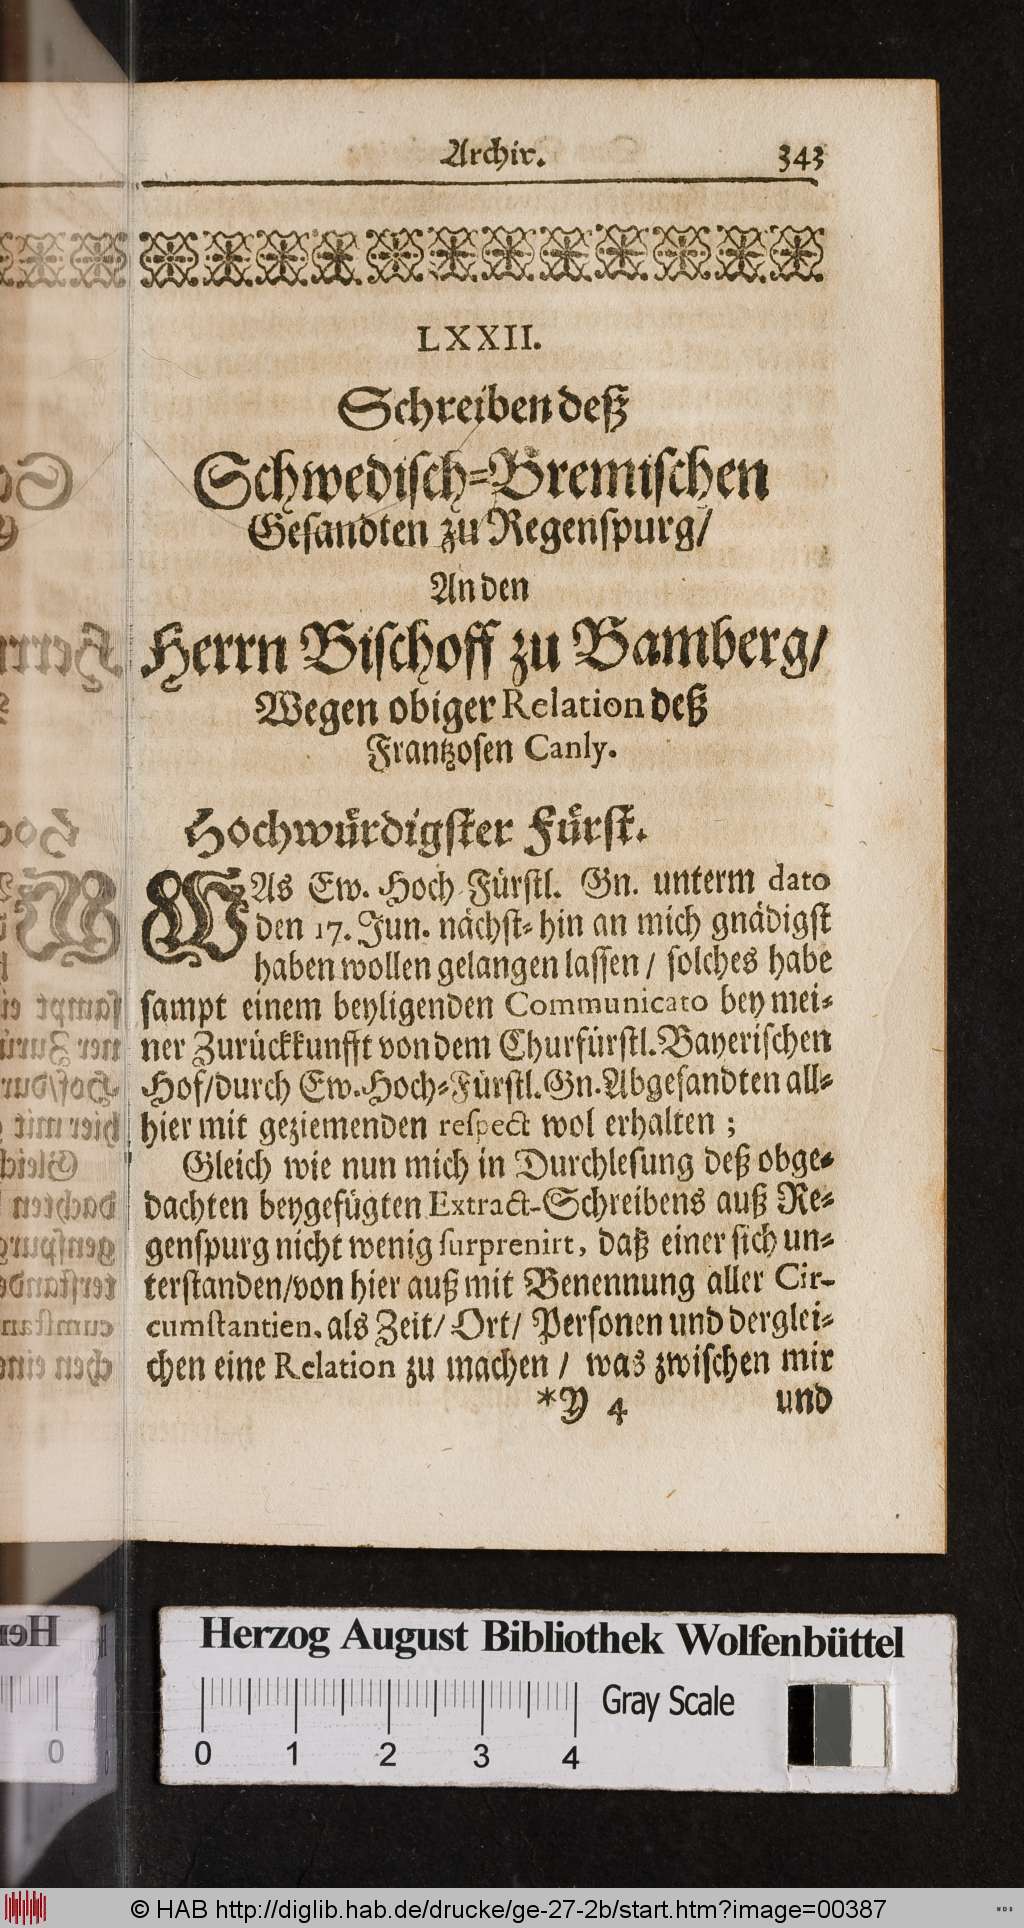 Archiv. 343
LXXII.
Schreiben deß
Schwedisch-Bremischen
Gesandten zu Regenspurg/
An den
Herrn Bischoff zu Bamberg/
Wegen obiger Relation deß
Frantzosen Canly.
Hochwürdigster Fürst.
WAs Ew. Hoch-Fürstl. Gn. unterm dato
den 17. Jun. nächst-hin an mich gnädigst
haben wollen gelangen lassen / solches habe
sampt einem beyligenden Communicato bey mei-
ner Zurückkunfft von dem Churfürstl. Bayerischen
Hof/durch Ew. Hoch-Fürstl. Gn. Abgesandten all-
hier mit geziemenden respect wol erhalten ;
Gleich wie nun mich in Durchlesung deß obge-
dachten beygefügten Extract-Schreibens auß Re-
genspurg nicht wenig surprenirt, daß einer sich un-
terstanden/von hier auß mit Benennung aller Cir-
cumstantien, als Zeit/ Ort/ Personen und derglei-
chen eine Relation zu machen / was zwischen mir
*Y 4 und
Herzog August Bibliothek Wolfenbüttel
Gray Scale
0 1 2 3 4
© HAB http://diglib.hab.de/drucke/ge-27-2b/start.htm?image=00387